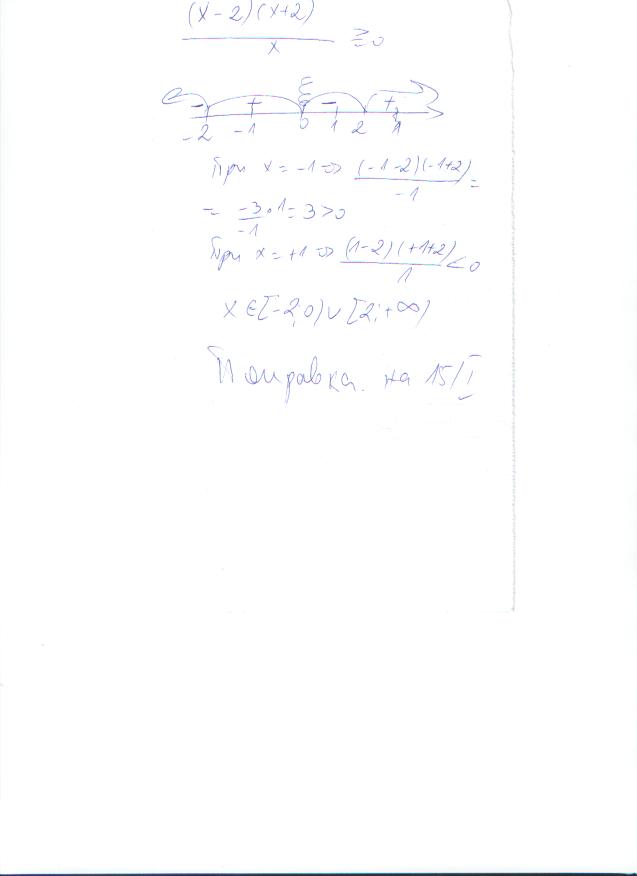 (x-2)(x+2)
x
≥0
- + - +
-2 -1 0 1 2
При x = -1 => (-1-2)(-1+2) =
-1
= -3.1 = 3>0
-1
При x = +1 => (1-2)(+1+2) <0
1
x ∈[-2;0)∪[2;+∞)
Поправка на 15/I